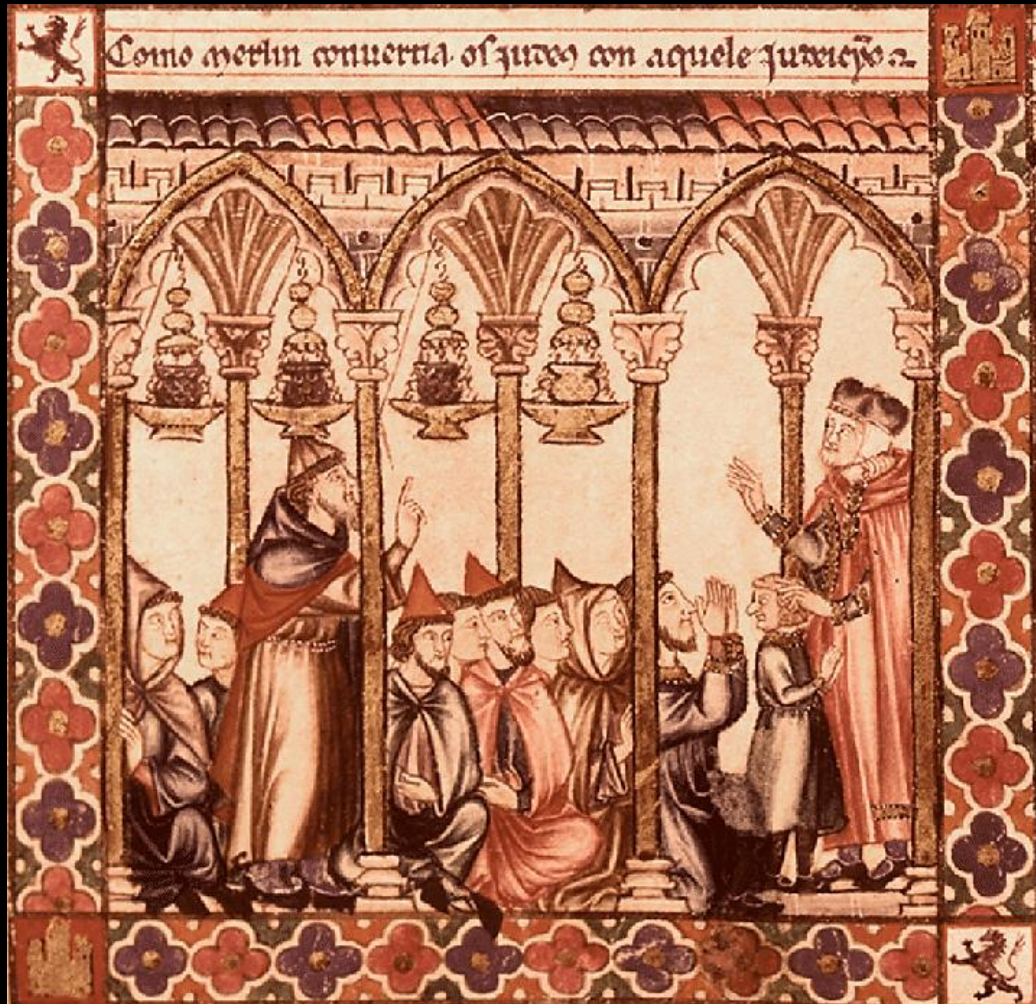 Como merlin conuertia os judeos con aquele judeucỹo